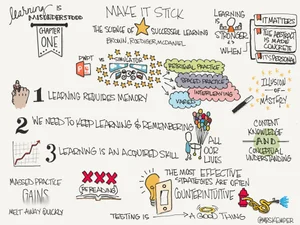 learning is
MISUNDERSTOOD
CHAPTER
ONE
MAKE IT STICK
THE SCIENCE OF SUCCESSFUL LEARNING
BROWN, ROEDIGER, MCDANIEL
LEARNING
IS
STRONGER
WHEN
IT MATTERS
THE ABSTRACT
IS MADE
CONCRETE
IT'S PERSONAL
SIMULATOR
RETRIEVAL PRACTICE
SPACED PRACTICE
INTERLEAVING
VARIED
ILLUSION
OF
MASTERY
1 LEARNING REQUIRES MEMORY
2 WE NEED TO KEEP LEARNING & REMEMBERING
ALL
OUR
LIVES
3 LEARNING IS AN ACQUIRED SKILL
CONTENT
KNOWLEDGE
AND
CONCEPTUAL
UNDERSTANDING
MASSED PRACTICE
GAINS
MELT AWAY QUICKLY
REREADING
THE MOST EFFECTIVE
STRATEGIES ARE OFTEN
COUNTERINTUITIVE
TESTING IS A GOOD THING